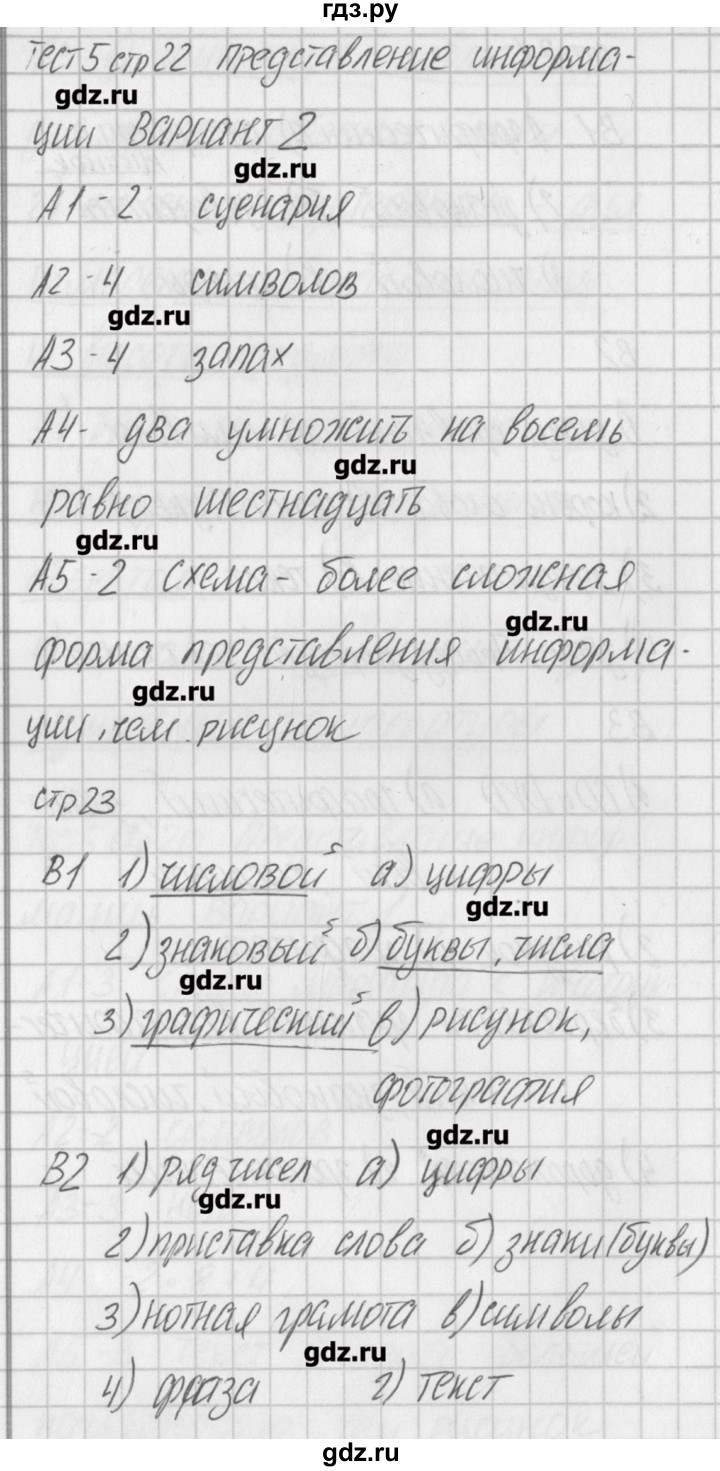 гдз.ру
тест 5 стр 22 представление информа-
gdz.ru
ции Вариант 2
gdz.ru
А1 - 2 сценария
А2 - 4 символов
gdz.ru
А3 - 4 запах
А4 - два умножить на восемь
gdz.ru
равно шестнадцать
gdz.ru
А5 - 2 схема - более сложная
gdz.ru
форма представления информа-
gdz.ru
ции, чем рисунок
стр 23
В1 1) числовой а) цифры
gdz.ru
2) знаковый б) буквы, числа
gdz.ru
3) графический в) рисунок,
фотография
gdz.ru
В2 1) ряд чисел а) цифры
gdz.ru
2) приставка слова б) знаки (буквы)
3) нотная грамота в) символы
gdz.ru
4) фраза г) текст
gdz.ru